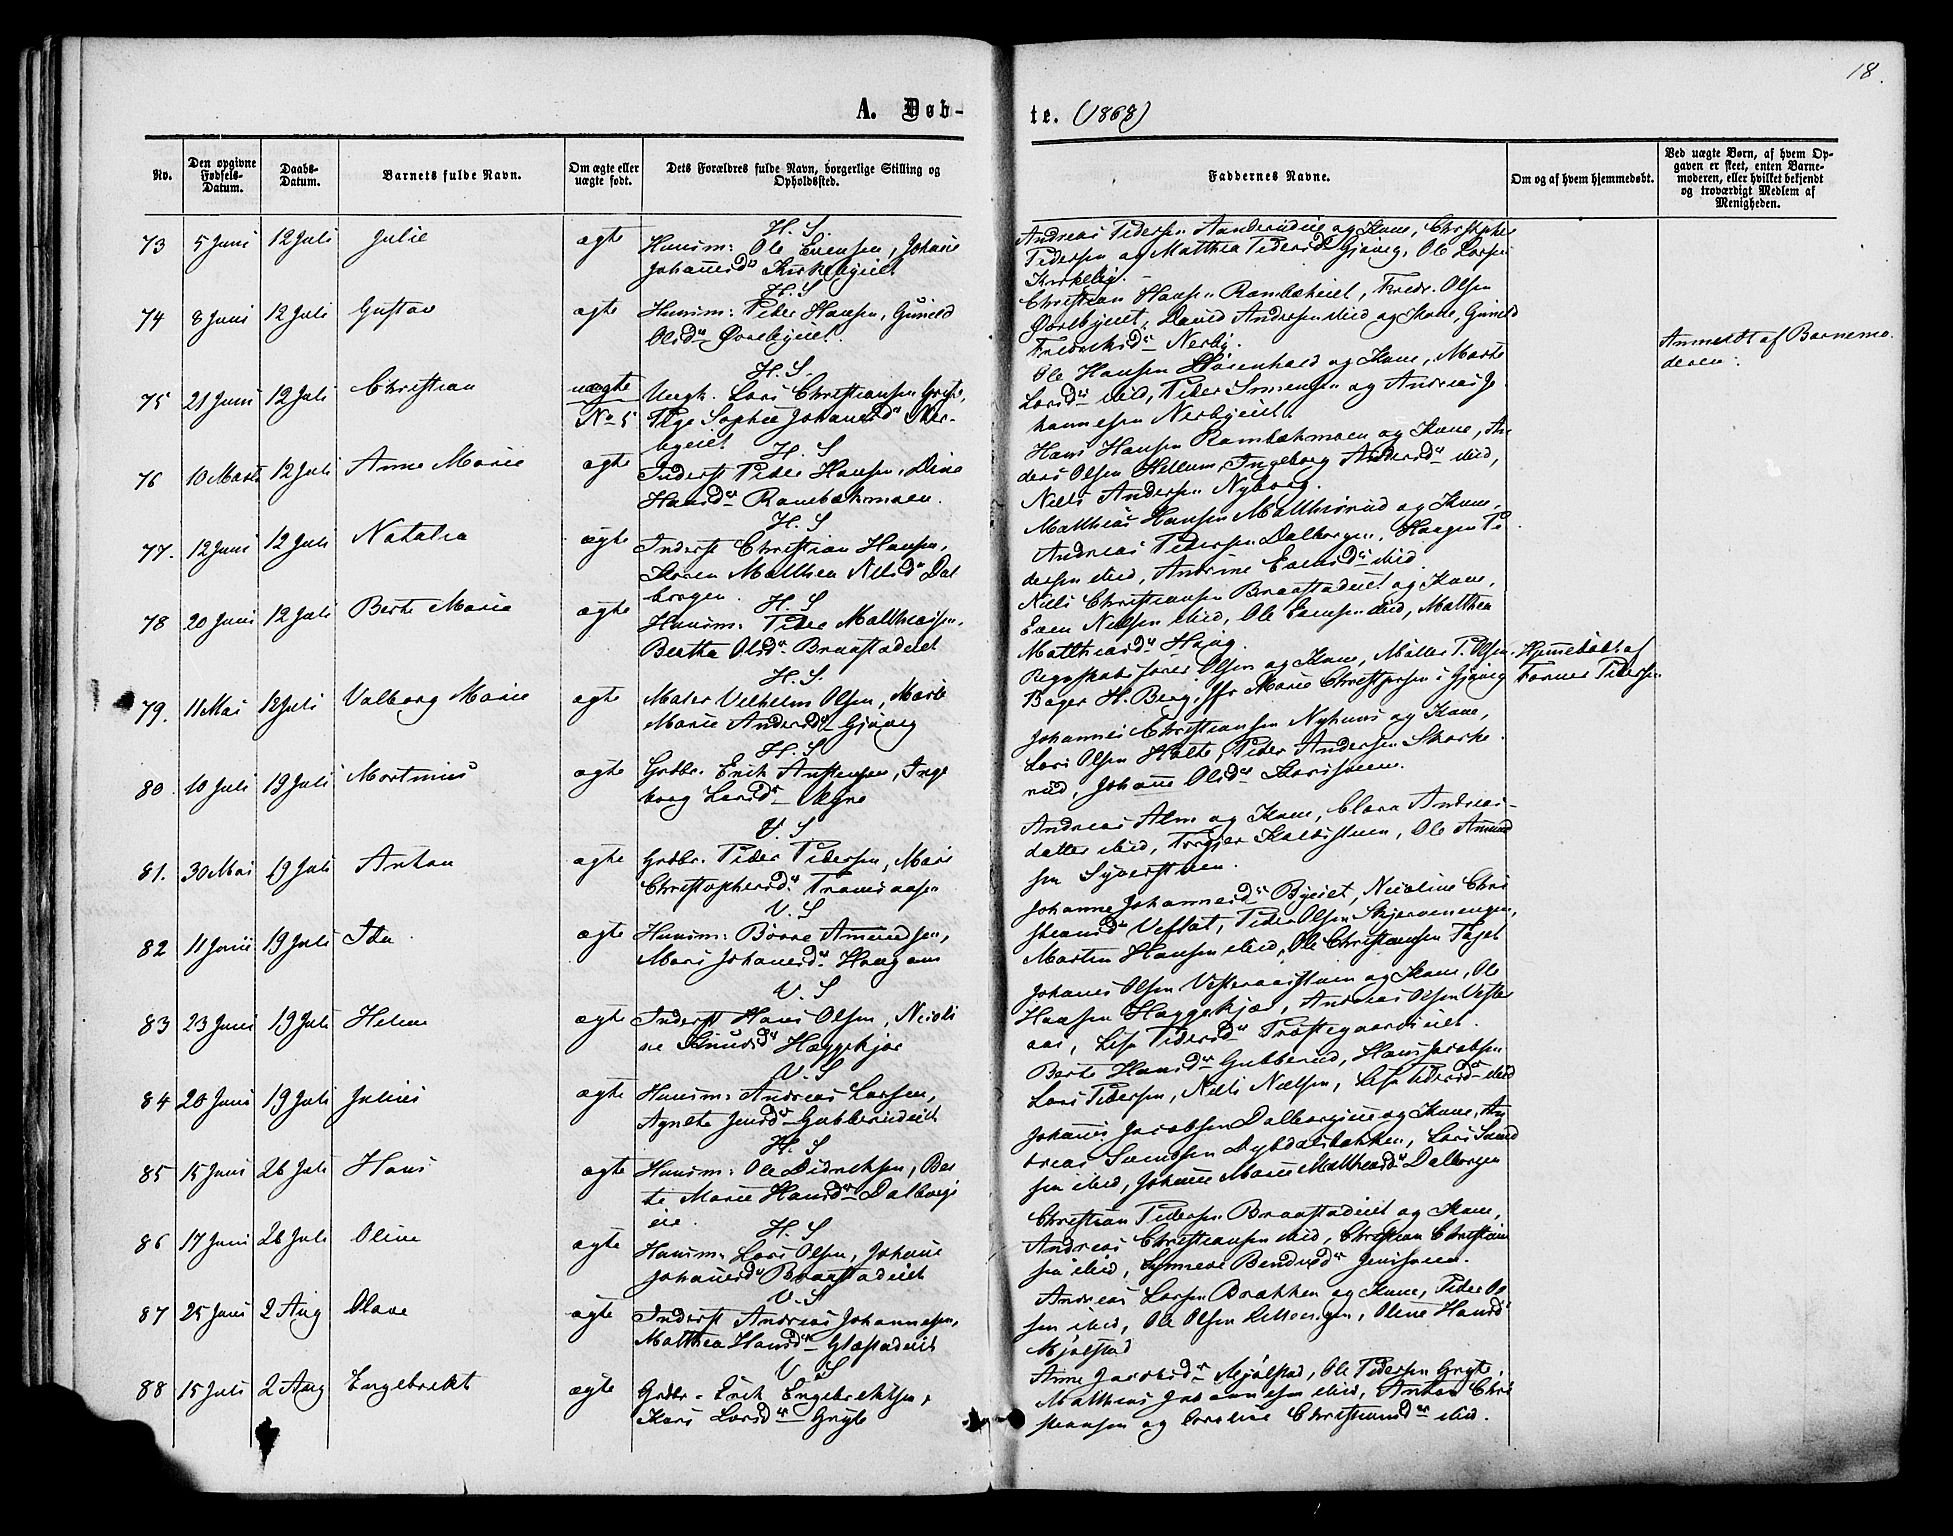 18.
A. Døb-
te. (1868)
No.
Den opgivne Fødsels-Datum.
Daabs-Datum.
Barnets fulde Navn.
Om ægte eller uægte født.
Dets Forældres fulde Navn, borgerlige Stilling og Opholdssted.
Faddernes Navne.
Om og af hvem hjemmedøbt.
Ved uægte Børn, af hvem Opgaven er skeet, enten Barnemoderen, eller hvilket bekjendt og troværdigt Medlem af Menigheden.
73 5 Juni 12 Juli Julie ægte
H. S.
Huusm: Ole Evensen, Johane
Johannesd Kirkebyeiet
Andreas Pedersen Aanderudeie og Kone, Christopher
Pedersen og Matthea Pedersd Gjøvig, Ole Larsen
Kirkeby.
74 8 Juni 12 Juli Gustav ægte
H. S
Huusm: Peder Hansen, Gunild
Olsd Øverbyeiet.
Christian Hansen Rambækeiet, Fredr. Olsen
Øverbyeiet, David Andersen ibid og Kone, Gunild
Fredriksd Nerby.
75 21 Juni 12 Juli Christian uægte No 5
H. S.
Ungk. Lars Christiansen Gryte,
Pige Sophie Johannesd Ner-
byeiet
Ole Hansen og Kone, Marte
Larsd ibid, Peder Simensen og Andreas Jo
hannesen Nerbyeiet.
Anmeldt af Barnemo
deren.
76 10 Marts 12 Juli Anne Marie ægte
H. S
Inderst Peder Hansen, Dine
Hansd Rambækmoen.
Hans Hansen Rambækmoen og Kone, An
ders Olsen Hellum, Ingeborg Andersd ibid,
Niels Andersen Nyborg.
77. 12 Juni 12 Juli Natalia ægte
H. S
Inderst Christian Hansen,
Karen Matthea Nilsd Dal
borgen.
Matthias Hansen Matthisrud og Kone,
Andreas Pedersen Dalborgen, Haagen Pe
dersen ibid, Andrine Evensd ibid.
78 20 Juni 12 Juli Berte Marie ægte
H. S
Huusm: Peder Matthiasen,
Bertha Olsd Braastadeiet
Niels Christiansen Braastadeiet og Kone,
Even Nielsen ibid, Ole Evensen ibid, Matthea
Matthiasd Haug.
79. 11 Mai 12 Juli Valborg Marie ægte
H. S.
Maler Vilhelm Olsen, Marte
Marie Andersd Gjøvig
Regnskabsfører Olsen og Kone, Møller P. Olsen,
Bager H. Berg, Marie Christophersen i Gjøvig
Hjemmedøbt af
Pedersen
80. 10 Juli 19 Juli Martinus ægte
H. S
Grdbr. Erik Anstensen, Inge
borg Larsd
Johannes Christiansen Nyhuus og Kone,
Lars Olsen Holte, Peder Andersen Skarke
rud, Johane Olsd
81. 30 Mai 19 Juli Anton ægte
V. S.
Grdbr. Peder Pedersen, Mari
Christophersd
Andreas Alm og Kone, Clara Andreas-
datter ibid, Torger, Ole Amund
sen Syverstuen.
82 11 Juni 19 Juli Ida ægte
V. S
Huusm: Børre Amundsen,
Mari Johannesd
Johanne Johannesd Byeiet, Nicoline Chri
stiansd Veflat, Peder Olsen Skjervenengen,
Martin Hansen ibid, Ole Christiansen
83 23 Juni 19 Juli Helene ægte
V. S
Inderst Hans Olsen, Nicoli
ne Knudsd Hæggekjær
Johanes Olsen Vesteraasstuen og Kone, Ole
Hansen Hæggekjær, Andreas Olsen Vester
aas, Lisa Pedersd Præstegaardseiet.
84 20 Juni 19 Juli Julius ægte
V. S
Huusm: Andreas Larsen,
Agnethe Jensd Gubberudeiet
Berte Hansd Gubberud, Hans Jacobsen
Lars Pedersen, Niels Nielsen, Lisa Pedersd ibid
85 15 Juni 26 Juli Hans ægte
H. S
Huusm: Ole Didriksen, Ber
te Marie Hansd Dalborge
eie.
Johanes Jacobsen Dalborgeie og Kone, An
dreas Svendsen Dybdalsbakken, Lars Svend
sen ibid, Johanne Marie Matthiasd Dalborgen
86 17 Juni 26 Juli Oline ægte
H. S
Huusm: Lars Olsen, Johane
Johannesd Braastadeiet
Christian Pedersen Braastadeiet og Kone,
Andreas Christiansen ibid, Christian Christian
sen ibid, Synneve
87 25 Juni 2 Aug Olave ægte
V. S
Inderst Andreas Johannesen,
Matthea Hansd Glæstadeiet
Andreas Larsen Brækken og Kone, Peder Ol
sen ibid, Ole Olsen, Oline Hansd
Mjølstad
88 15 Juli 2 Aug Engebrekt ægte
V. S
Grdbr. Erik Engebrektsen,
Kari Larsd Gryte
Anne Jacobsd Mjølstad, Ole Pedersen Gryte,
Matthias Johannesen ibid, Anton Chri
stiansen og Caroline Christiansd ibid.